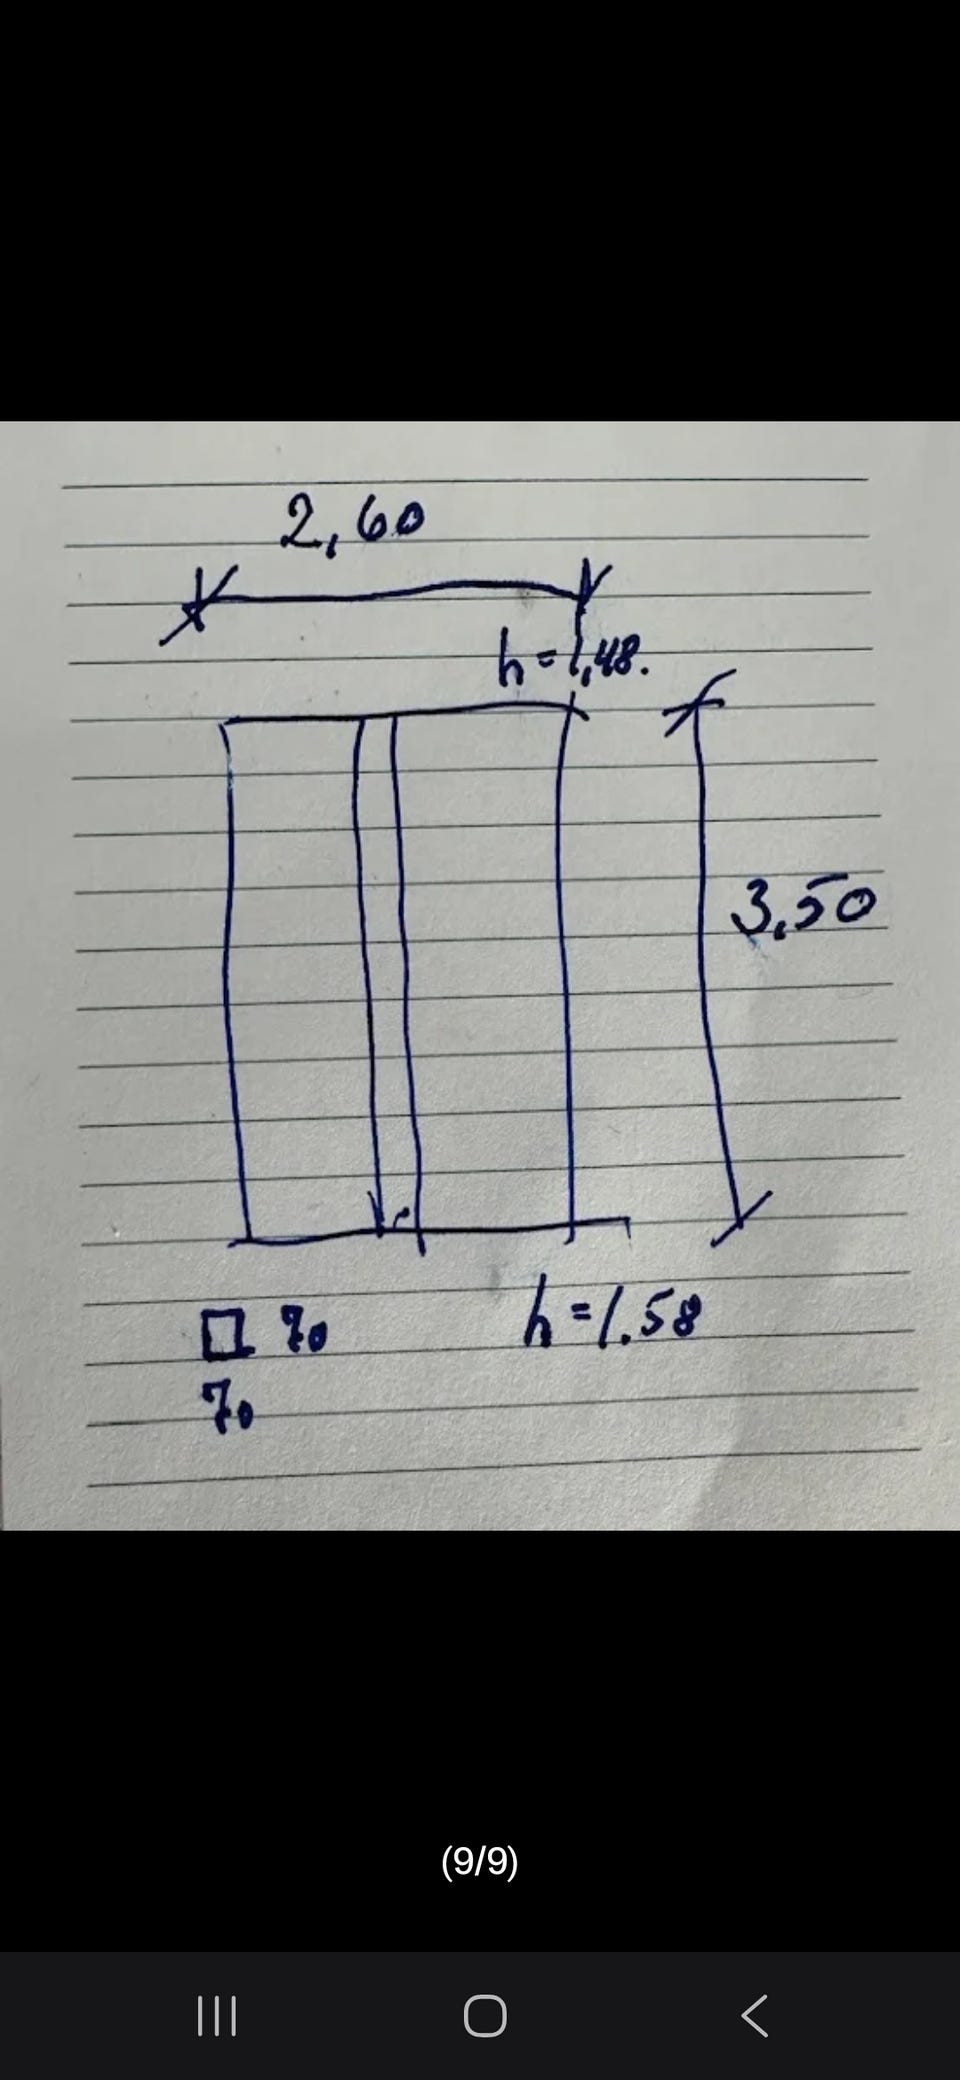 2,60
h=1,48.
3,50
70
h=1.58
70
(9/9)